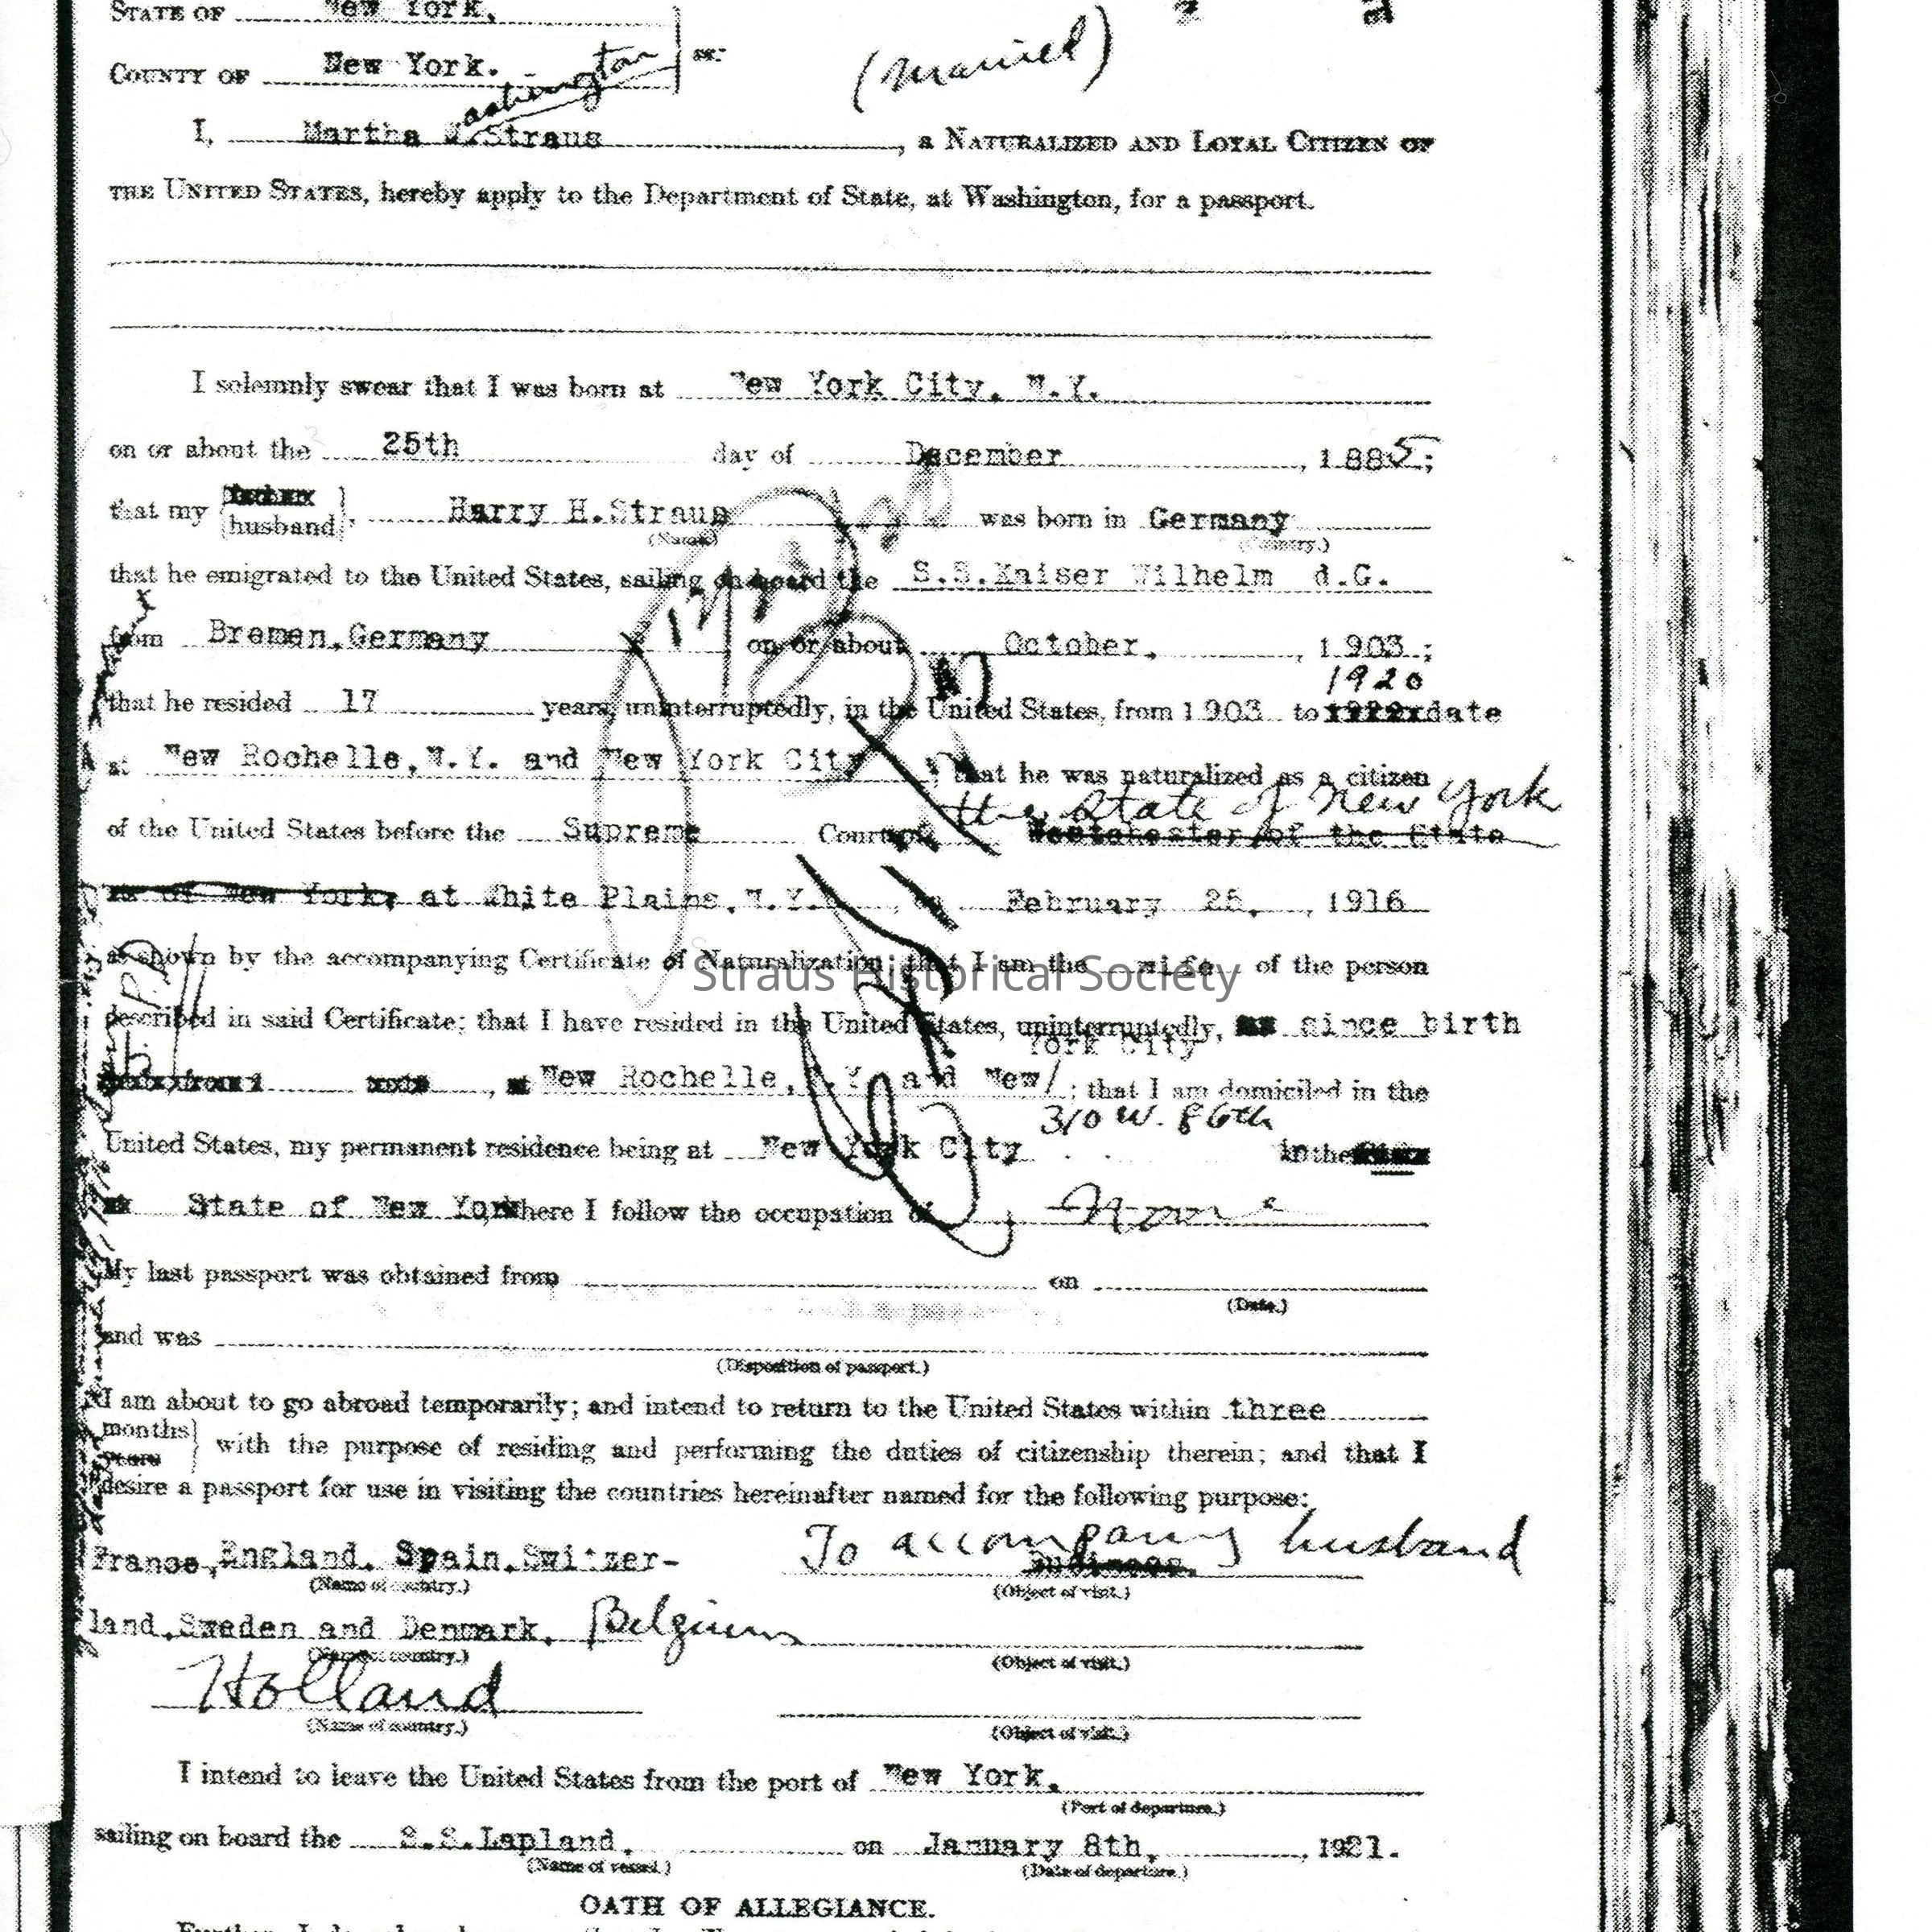 STATE OF New York.
COUNTY OF New York. ss:
(married)
ashington
I, Martha W.Straus, a NATURALIZED AND LOYAL CITIZEN OF
THE UNITED STATES, hereby apply to the Department of State, at Washington, for a passport.
I solemnly swear that I was born at New York City, N.Y.
on or about the 25th day of December, 1885;
that my father husband, Harry H.Straus was born in Germany
(Name) (Country.)
that he emigrated to the United States, sailing on board the S.S.Kaiser Wilhelm d.G.
from Bremen,Germany on or about October, 1903;
1920
that he resided 17 years, uninterruptedly, in the United States, from 1903 to date
at New Rochelle,N.Y. and New York City; that he was naturalized as a citizen
the State of New York
of the United States before the Supreme Court of Westchester/of the State
of New York, at White Plains, N.Y., on February 25, 1916
as shown by the accompanying Certificate of Naturalization that I am the wife of the person
Straus Historical Society
described in said Certificate; that I have resided in the United States, uninterruptedly, since birth
York City
New Rochelle, N.Y. and New/; that I am domiciled in the
310 W. 86th
United States, my permanent residence being at New York City in the
State of New York where I follow the occupation of None
My last passport was obtained from on
(Date.)
and was
(Disposition of passport.)
I am about to go abroad temporarily; and intend to return to the United States within three
months
years
with the purpose of residing and performing the duties of citizenship therein; and that I
desire a passport for use in visiting the countries hereinafter named for the following purpose:
France,England, Spain,Switzer- To accompany husband
business.
(Name of country.) (Object of visit.)
land,Sweden and Denmark, Belgium
(Name of country.) (Object of visit.)
Holland
(Name of country.) (Object of visit.)
I intend to leave the United States from the port of New York.
(Port of departure.)
sailing on board the S.S.Lapland, on January 8th, 1921.
(Name of vessel.) (Date of departure.)
OATH OF ALLEGIANCE.